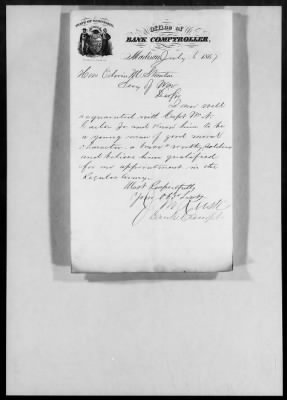 STATE OF WISCONSIN
Office of
BANK COMPTROLLER,
Madison, July 6 1867
Hon Edwin M. Stanton
Secy of War
Dear Sir
I am well
acquainted with Capt Wm H.
Jr and know him to be
a young man of good moral
character, a brave & worthy soldier
and believe him qualified
for an appointment in the
Regular Army.
Most Respectfully
Your Obt Servt
Bank Compt